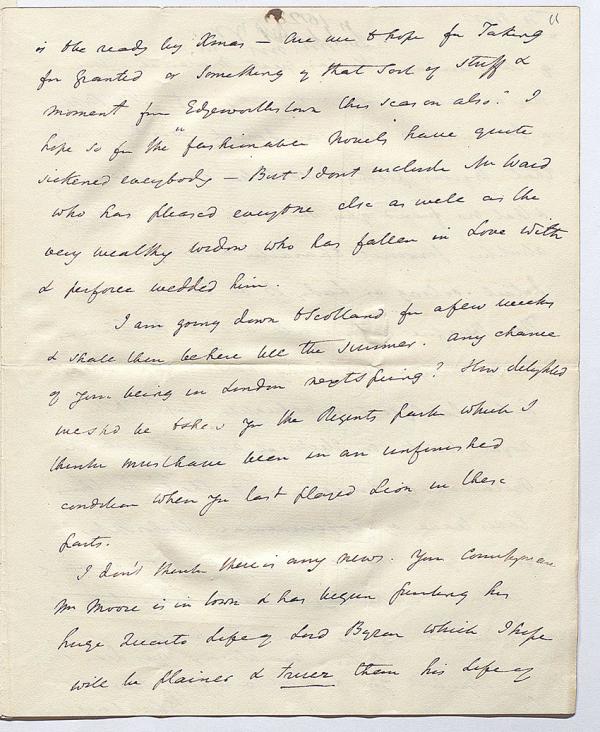 is to be ready by Xmas – Are we to hope for Taking
for Granted or Something of that sort of stuff &
moment from Edgeworthstown this season also? I
hope so for the "fashionable Novels" have quite
sickened everybody – But I dont include Mr Ward
who has pleased everyone else as well as the
very wealthy widow who has fallen in Love with
& perforce wedded him.
I am going down to Scotland for a few weeks
& shall then be here till the Summer. Any chance
of your being in London next Spring? How delighted
we shd be to shew you the Regents park which I
think must have been in an unfinished
condition when you last played Lion in these
parts.
I don't think there is any news. Your Countryman
Mr Moore is in town & has begun printing his
huge Quarto Life of Lord Byron which I hope
will be plainer & truer than his Life of